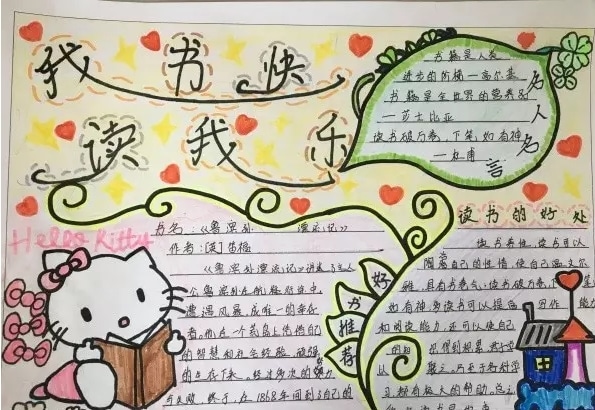 我 书 快
读 我 乐
书籍是人类
进步的阶梯—高尔基
书籍是全世界的营养品
—莎士比亚
读书破万卷,下笔如有神
—杜甫
名人名言
Hello Kitty
书名:《鲁滨孙 漂流记》
作者:[英]笛福
《鲁滨孙漂流记》讲述了主人
公鲁滨孙在航海
遭遇风暴,成唯一的幸存
者。他在一个荒岛上凭借自己
的智慧和 经验,顽强
的生存下来。经过多次的努力
终于,在1868年回到自己的
好书推荐
读书的好处
读书养性,读书可以
陶冶自己的性情,使自己温文尔
雅,具有书卷气;读书破万卷,下笔
如有神,多读书可以提高 写作能力
和阅读能力,还可以使自己
得到积累
从 乃至于各科学
习,都有极大的帮助。总之